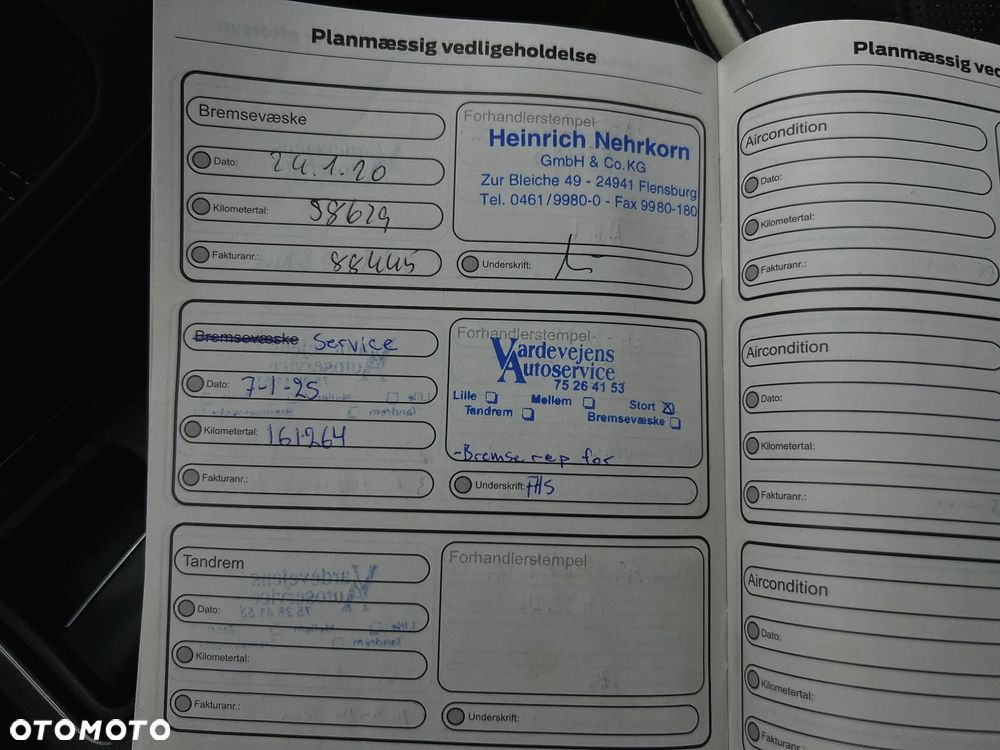 Planmæssig vedligeholdelse
Bremsevæske
Dato: 24.1.20
Kilometertal: 98629
Fakturanr.: 88445
Forhandlerstempel
Heinrich Nehrkorn
GmbH & Co. KG
Zur Bleiche 49 - 24941 Flensburg
Tel. 0461/9980-0 - Fax 9980-180
Underskrift:
Bremsevæske Service
Dato: 7-1-25
Kilometertal: 161.264
Fakturanr.:
Forhandlerstempel
Vardevejens
Autoservice
75 26 41 53
Lille Mellem Stort
Tandrem Bremsevæske
-Bremse rep for
Underskrift: FHS
Tandrem
Dato:
Kilometertal:
Fakturanr.:
Forhandlerstempel
Underskrift:
Planmæssig ved
Aircondition
Dato:
Kilometertal:
Fakturanr.:
Aircondition
Dato:
Kilometertal:
Fakturanr.:
Aircondition
Dato:
Kilometertal:
Fakturanr.:
OTOMOTO